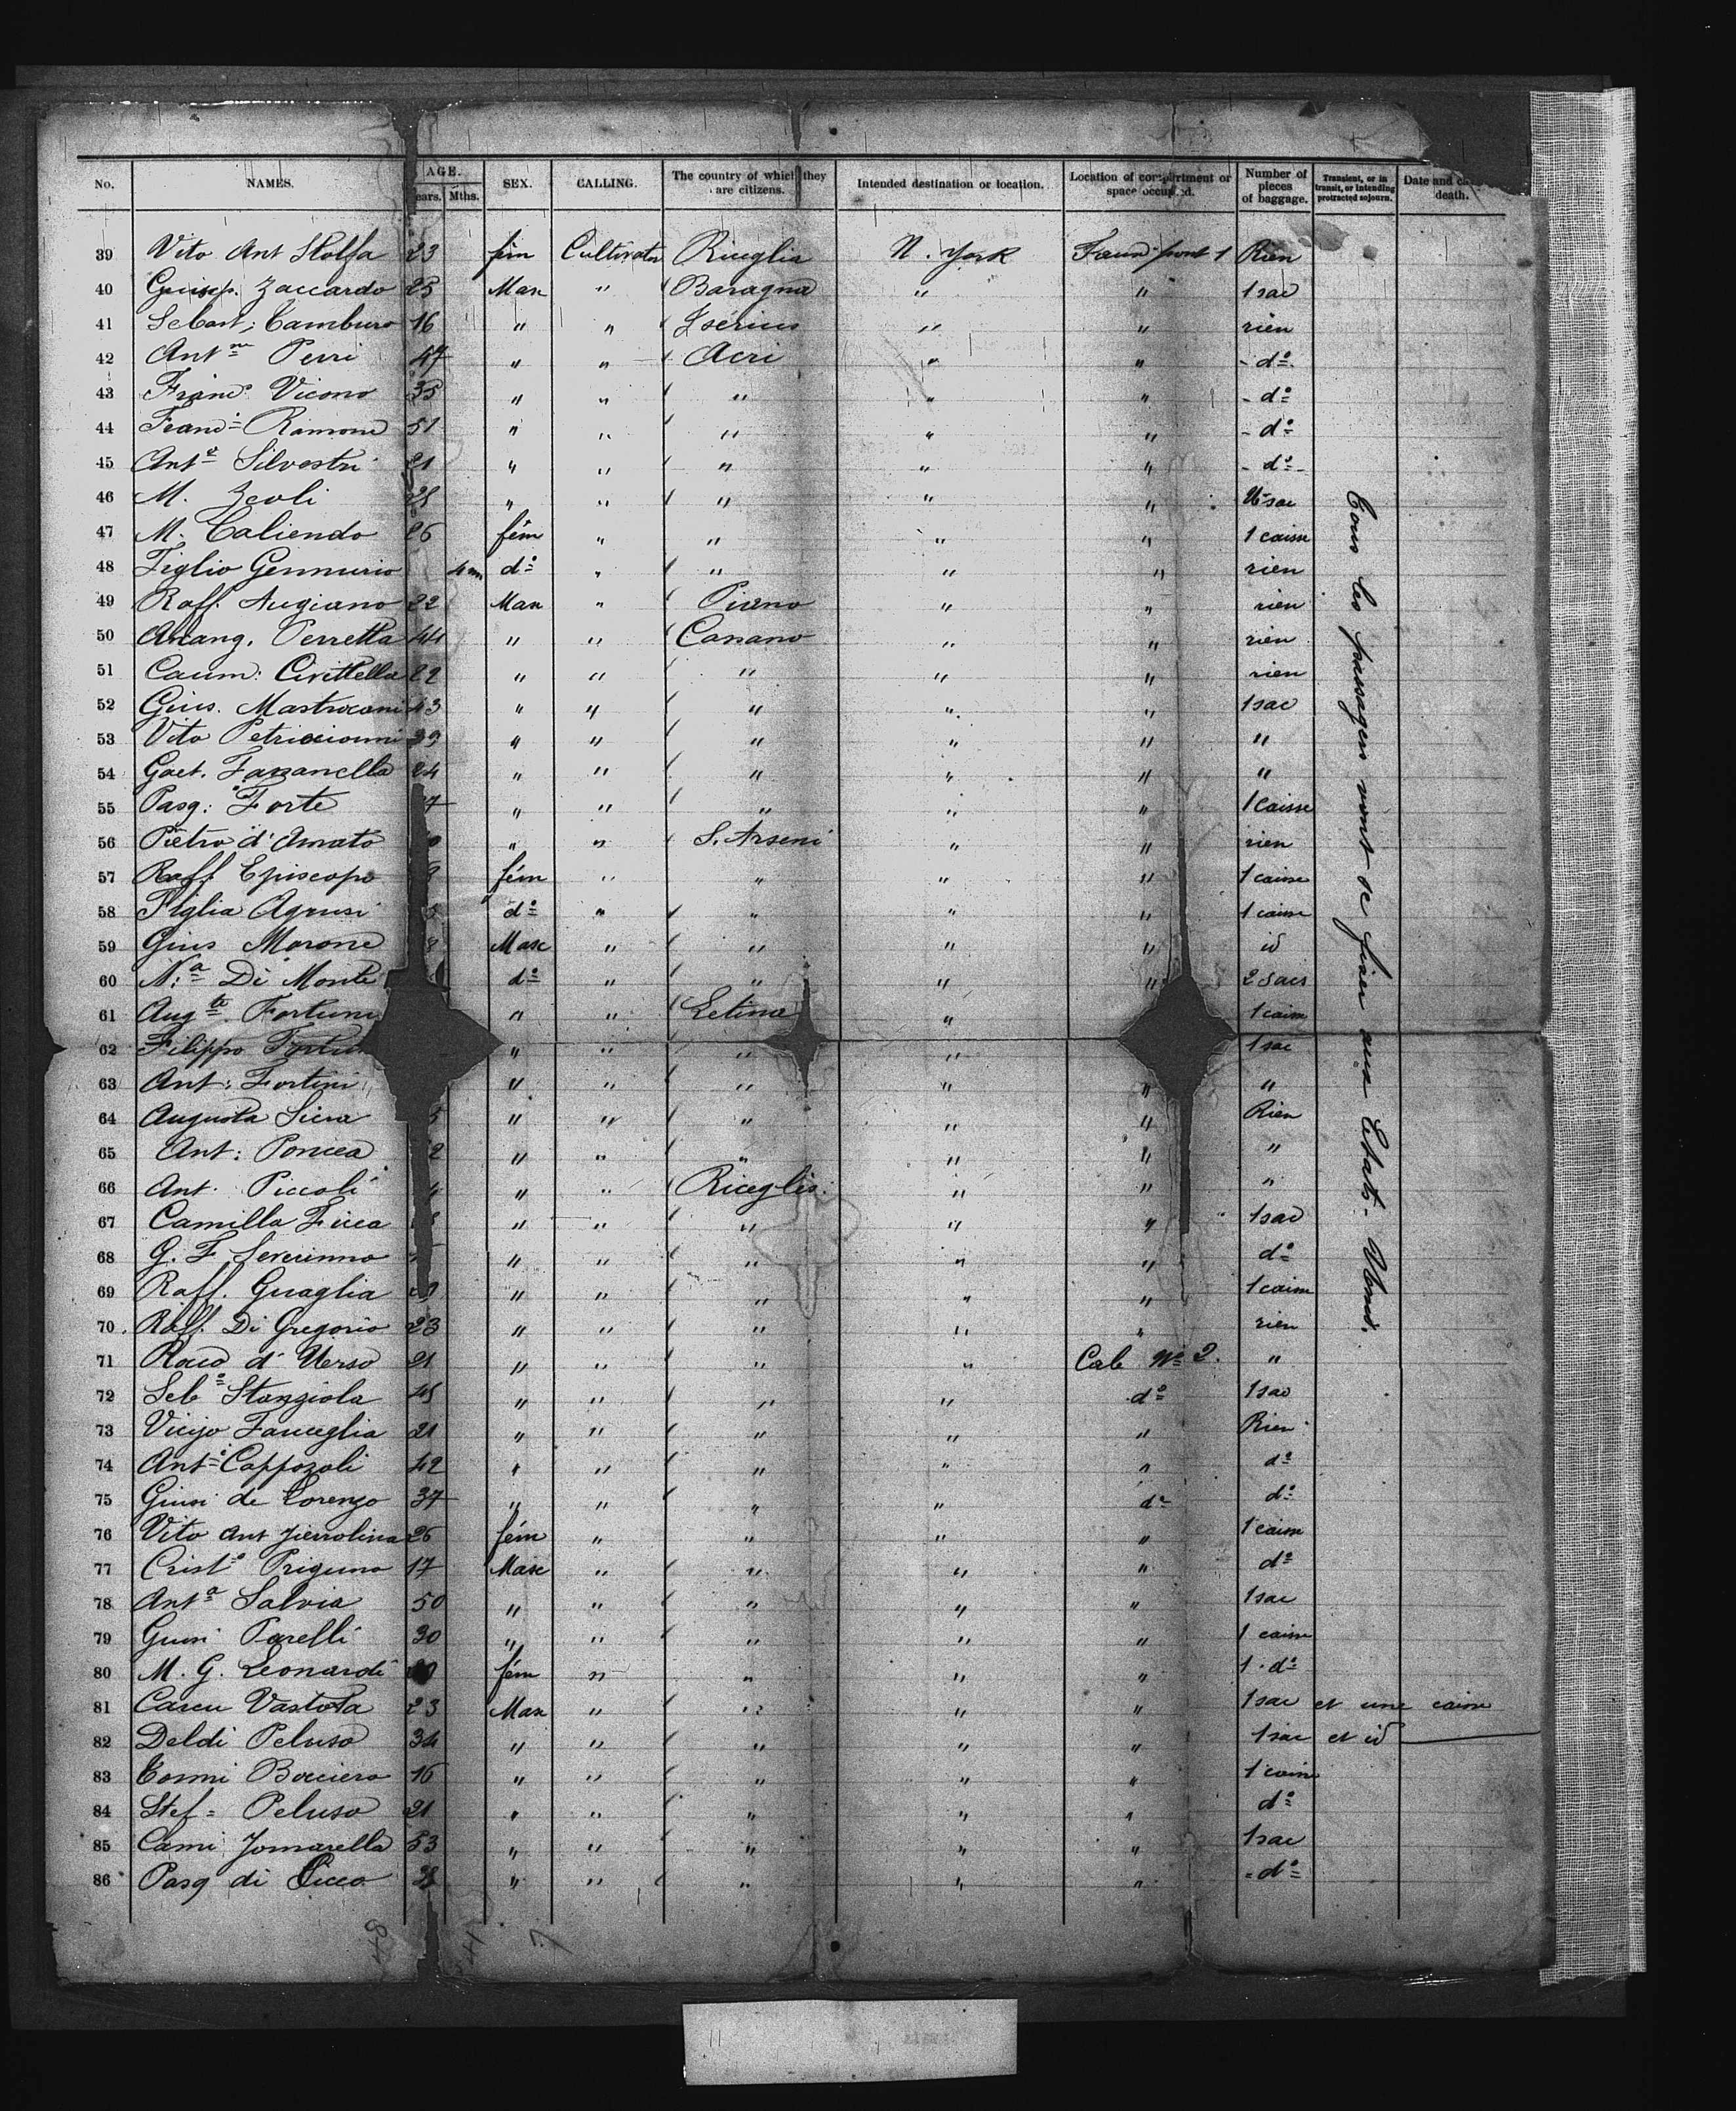 No. NAMES. AGE. SEX. CALLING. The country of which they are citizens. Intended destination or location. Location of compartment or space occupied. Number of pieces of baggage. Transient, or in transit, or intending protracted sojourn. Date and death.
ears. Mths.
39 Vito Ant Stolfa 23 fém Cultivator N. York 1 Rien
40 Giusep. Zaccardo 25 Mas " Baragna " " 1 sac
41 Sebast; Camburo 16 " " " " rien
42 Ant Perri 47 " " Acri " " - do -
43 Franc. Vicono 35 " " " " " - do
44 Franc Ramoni 51 " " " " " - do
45 Ant Silvestri 21 " " " " " - do -
46 M. Zeoli " " " " " sac
47 M. Caliendo 26 fém " " " " 1 caisse
48 Figlio Gennurio 4 m do " " " " rien
49 Raff. Augiano 22 Mas " Piano " " rien
50 Arcang. Perretta 44 " " Cassano " " rien
51 Civittella 22 " " " " " rien
52 Gius. Mastrocani 43 " " " " " 1 sac
53 Vito 39 " " " " " "
54 Gaet. Fasanella 24 " " " " " "
55 Pasq: Forte 7 " " " " " 1 Caisse
56 Pietro d'Amato " " S. Arseni " " rien
57 Raff. Episcopo fém " " " " 1 caisse
58 Figlia Agnusi do " " " " 1 caisse
59 Gius Morone 8 Masc " " " " id
60 N:a Di Monte do " " " " 2 sacs
61 Aug.te Fortuni " " Letino " 1 caisse
62 Filippo " " " " 1 sac
63 Ant: Fortini " " " " " "
64 Augusta Sicra 5 " " " " " Rien
65 Ant: Poncea 2 " " " " " "
66 Ant. Piccoli " " Riceglia " " "
67 Camilla Ficca " " " " " 1 sac
68 G. F Severinno " " " " " do
69 Raff. Guaglia " " " " " 1 caisse
70. Raff. Di Gregorio 23 " " " " " rien
71 Rocco d'Verso 21 " " " " Cab No 2. "
72 Seb Stanziola 45 " " " " do 1 sac
73 Fanceglia 21 " " " " " Rien
74 Ant Cappozoli 42 " " " " " do
75 Giusi de Lorenzo 37 " " " " do do
76 Vito Ant Jierrolina 26 fém " " " " 1 caisse
77 Crist Priguno 17 Masc " " " " do
78 Anta Salvia 50 " " " " " 1 sac
79 Parelli 30 " " " " " 1 caisse
80 M. G. Leonardi fém " " " " 1 do
81 Vastola 23 Mas " " " " 1 sac et une caisse
82 Deldi Peluso 34 " " " " " 1 sac et id
83 Cosmi Bocciero 16 " " " " " 1 caisse
84 Stef = Peluso 21 " " " " " do
85 Cami Jomarella 53 " " " " " 1 sac
86 Pasq di Cicco " " " " " - do -
Tous les passagers vont se fixer aux Etats-Unis.